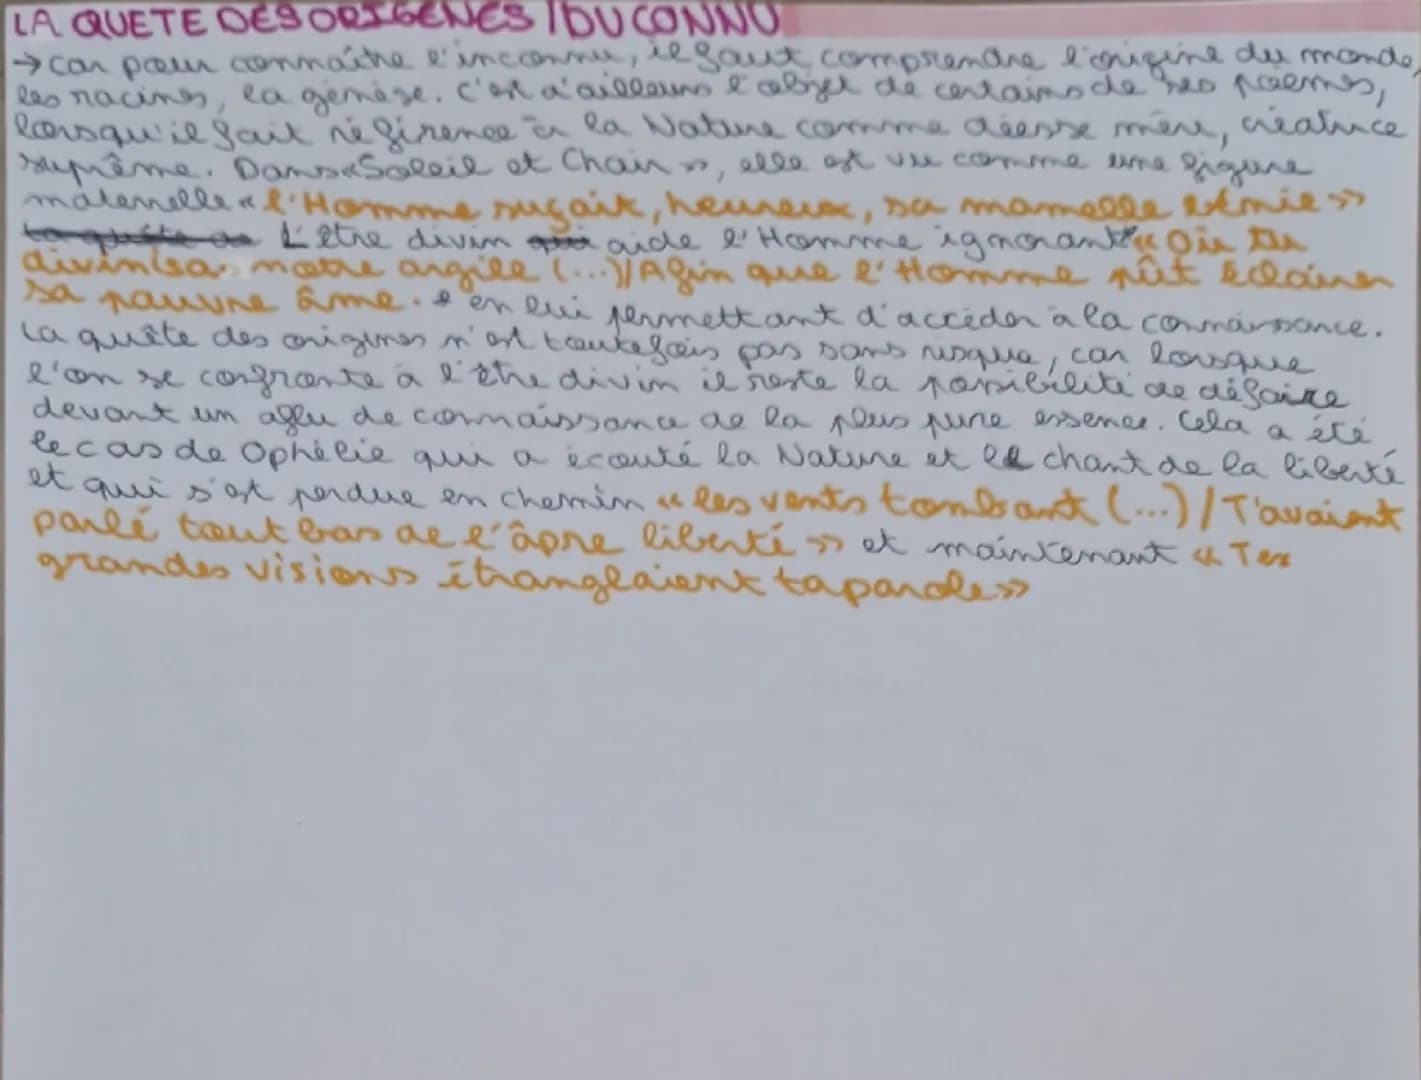 LA QUETE DES ORIGENES / DU CONNU
→ car pour connaître l'inconnu, il faut comprendre l'origine du monde,
les racines, la genèse. C'est d'ailleurs l'objet de certains de ses poèmes,
lorsqu'il fait référence à la Nature comme déesse mère, créatrice
suprême. Dans «Soleil et Chair», elle est vu comme une figure
maternelle « l'Homme suçait, heureux, sa mamelle bénie »
L'être divin aide l'Homme ignorant « Où tu
divinisas notre argile (...) / Afin que l'Homme pût éclairer
sa pauvre âme. » en lui permettant d'accéder à la connaissance.
La quête des origines n'est toutefois pas sans risque, car lorsque
l'on se confronte à l'être divin il reste la possibilité de défaire
devant un afflu de connaissance de la plus pure essence. Cela a été
le cas de Ophélie qui a écouté la Nature et le chant de la liberté
et qui s'est perdue en chemin « les vents tombant (...) / T'avaient
parlé tout bas de l'âpre liberté » et maintenant « Tes
grandes visions étranglaient ta parole »